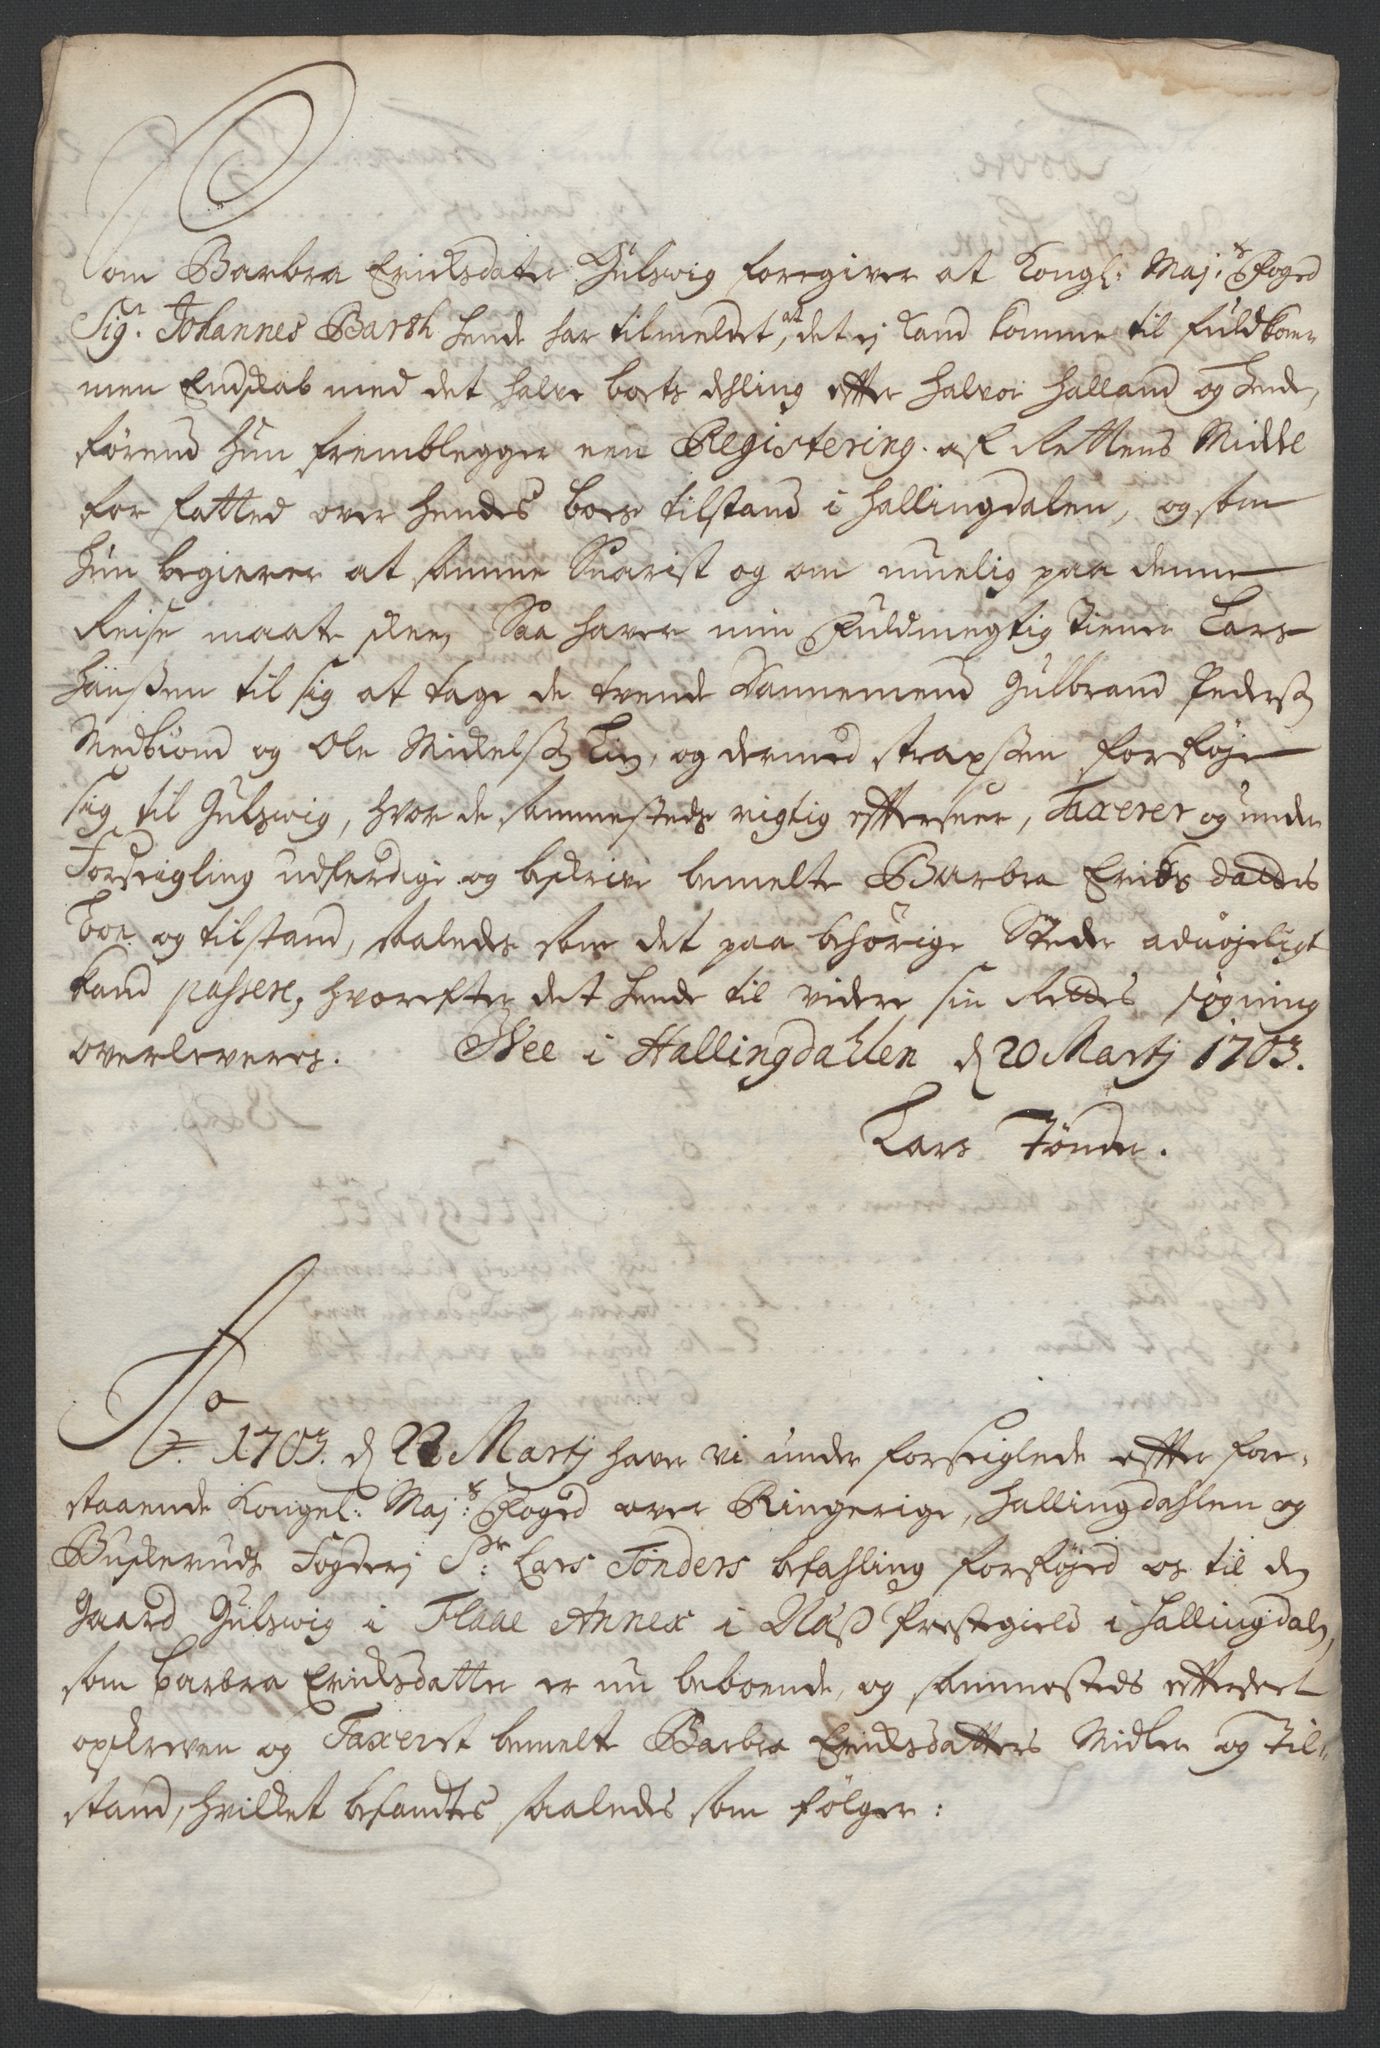 Som Barbra Ericksdater Gulswig foregiver at Kongl: Maj:ts Foged
Sigr. Johannes Barth hende har tilmeldet, at det ej kand komme til fuldkom-
men Endskab med det halve boets dehling efter Halvor Halland og hende,
førend hun fremblegger een Registering af Rettens Middel
forfatted over hendes boes tilstand i Hallingdalen, og som
hun begierer at samme Snarist og om muelig paa denne
Reise maate skee, Saa haver min Fuldmegtig Tiener Lars
Hanssen til sig at tage de tvende Dannemend Gulbrand Pederss:
Medbiond og Ole Mickelss: Lie, og dermed strax sten forføje
sig til Gulswig, hvor de sammesteds rigtig efterseer, Taxerer og under
Forseigling udferdige og beskrive bemelte Barbra Eriks datters
boe og tilstand, saaleds som det paa behørige Steder aduojeligt
kand passere, hvorefter det hende til videre sin Rettes søgning
overleveres. Skee i Hallingdahlen d 20 Martj 1703.
Lars Tønder.
Ao 1703. d 22 Martj haver vi under forseiglede efter fore-
staaende Kongel: Maj:ts Foged over Ringerige, Hallingdahlen og
Buskeruds Fogderj Sr: Lars Tønders befahling forføjed os til den
Gaard Gulswig i Flaae Annex i Næss Prestegield i Hallingdaln,
som Barbra Ericksdatter er nu beboende, og sammesteds efterseet
opskreven og Taxerit bemelte Barbra Ericksdatters Midler og Til-
stand, hvilket befandtes saaledes som følger: